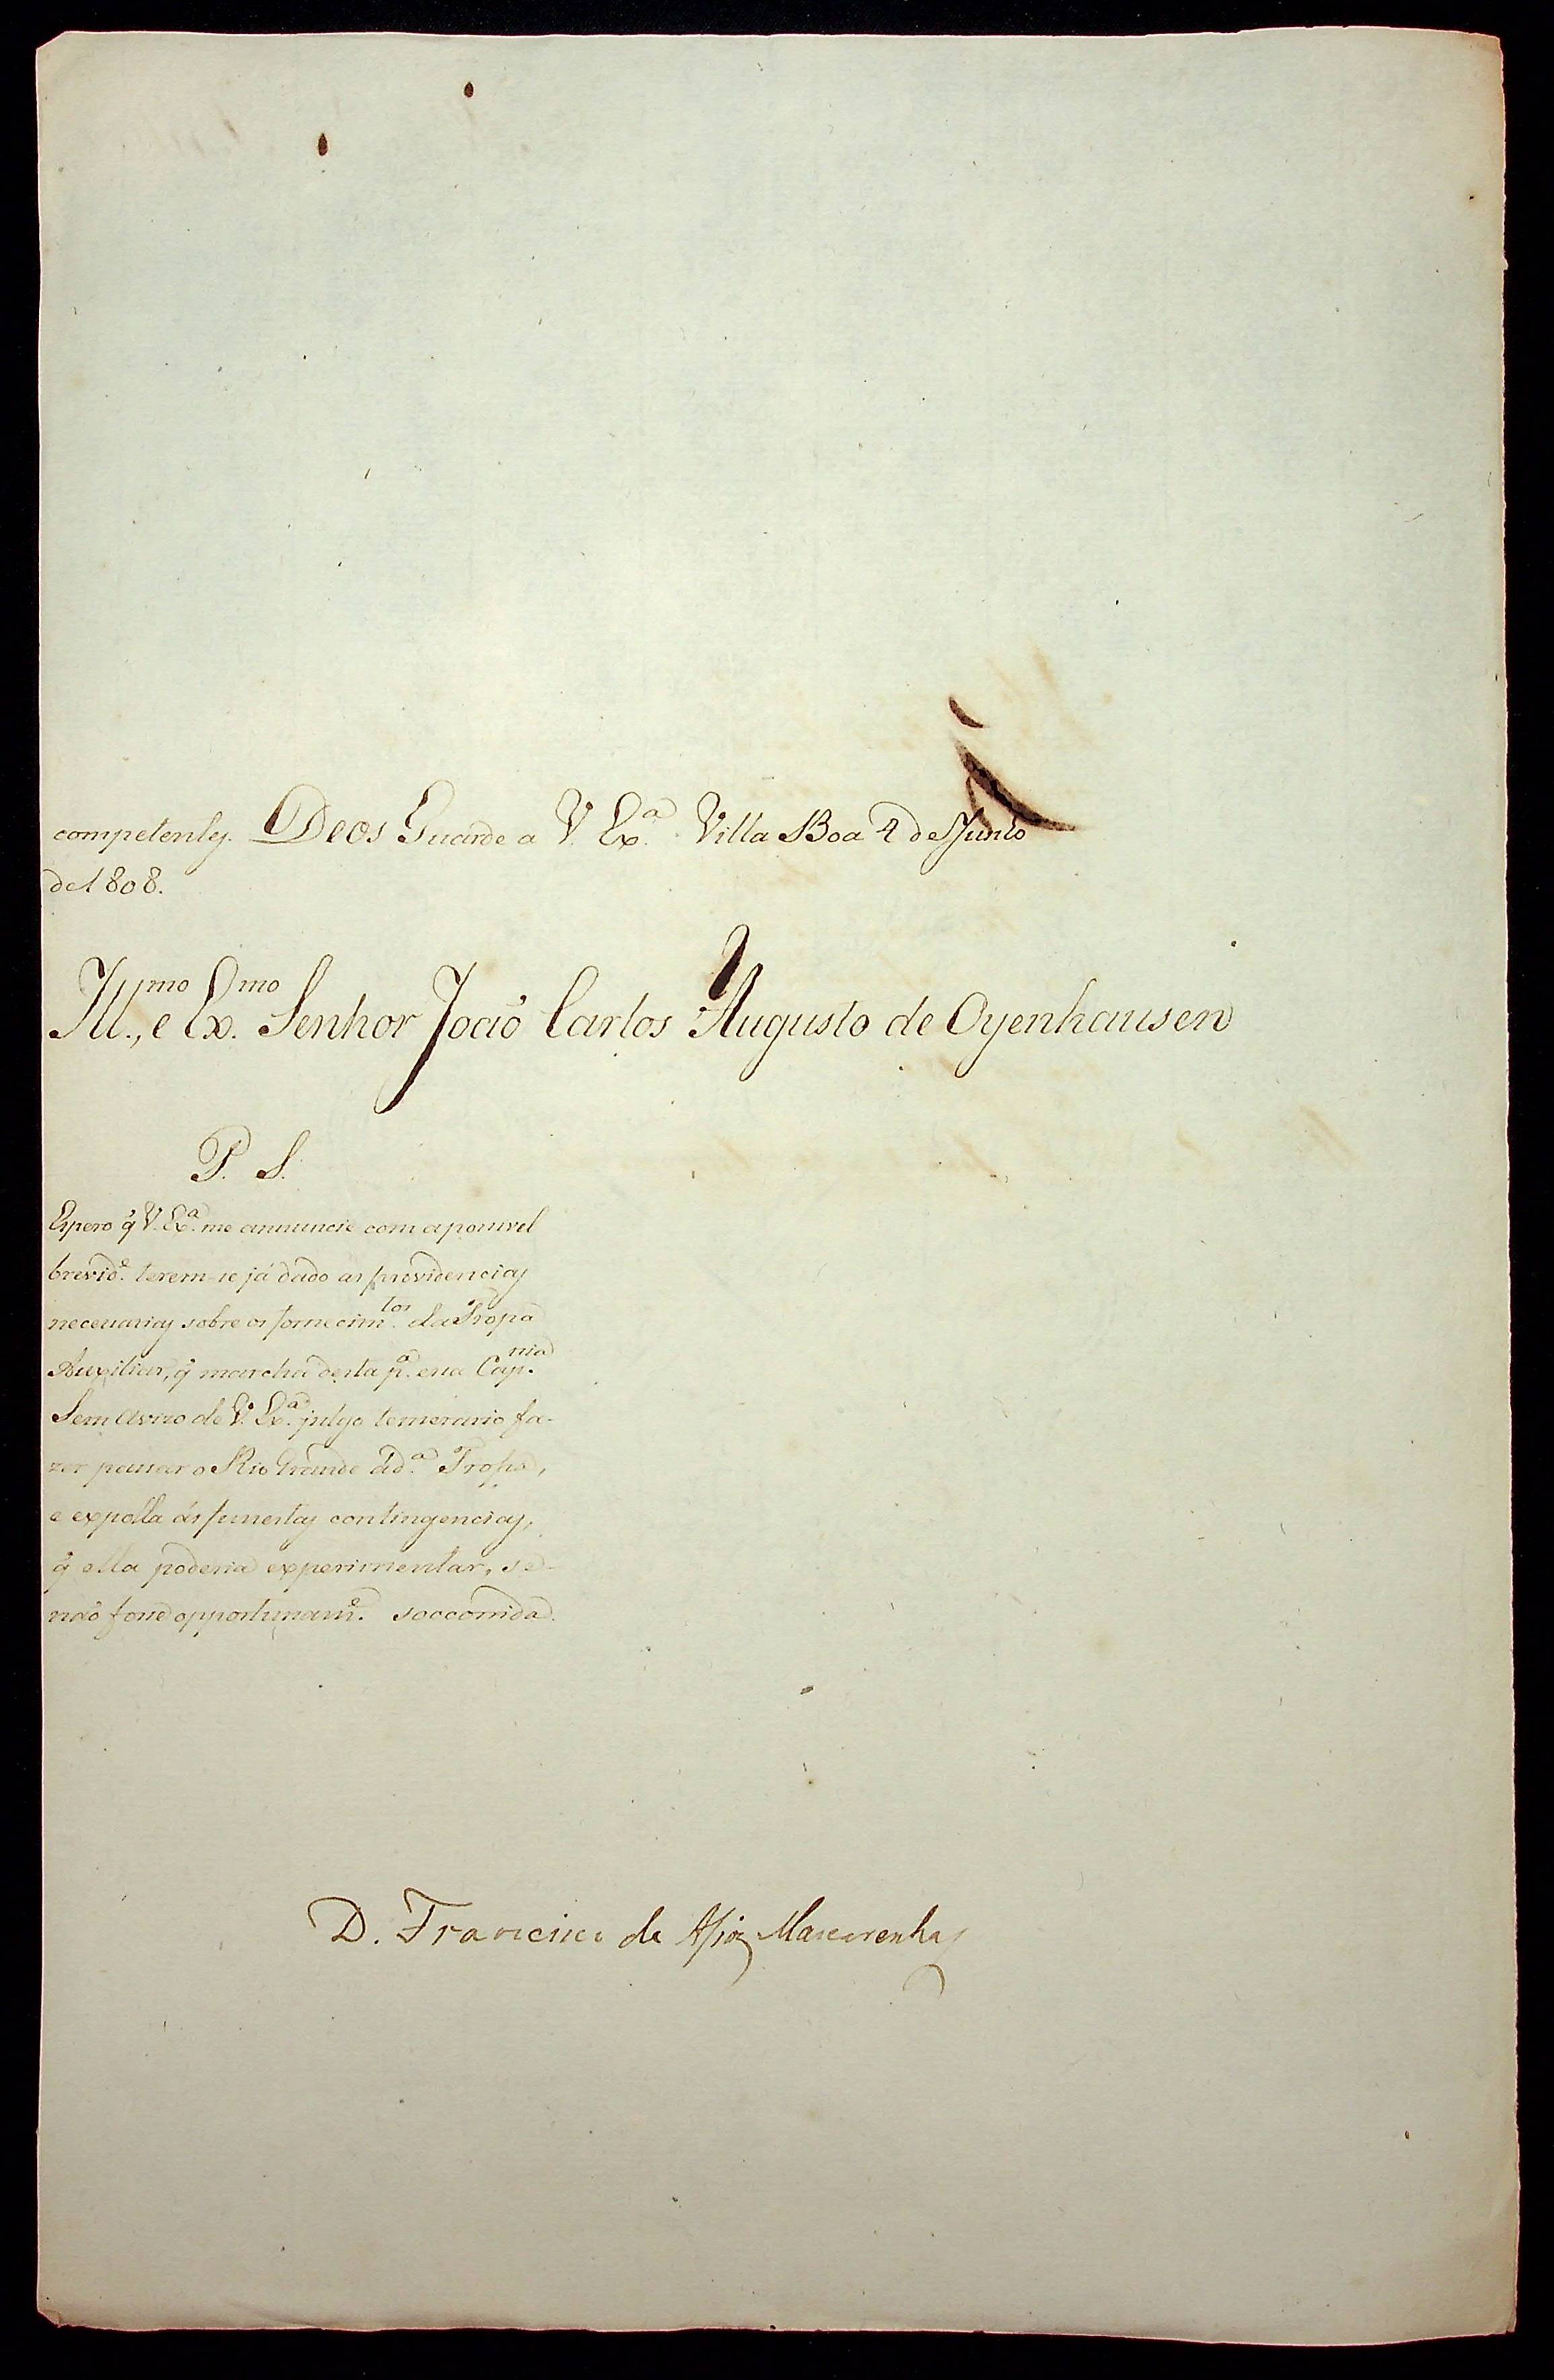 competentes. Deos Guarde a V. Exª. Villa Boa 4 de Junho
de 1808.
Illmo., e Exmo. Senhor João Carlos Augusto de Oyenhausen
P. S.
Espero q̃ V. Exª. me annuncie com a possivel
brevidᵉ. terem-se já dado as providencias
necessarias sobre os fornecimtos. da Tropa
Auxiliar, q̃ marcha desta pª. essa Capnia.
Sem aviso de V. Exª. julgo temerario fa-
zer passar o Rio Grande á dª. Tropa,
e expolla ás funestas contingencias,
q̃ ella poderia experimentar, se
não fosse opportunamᵉ. soccorrida.
D. Francisco de Assis Mascarenhas